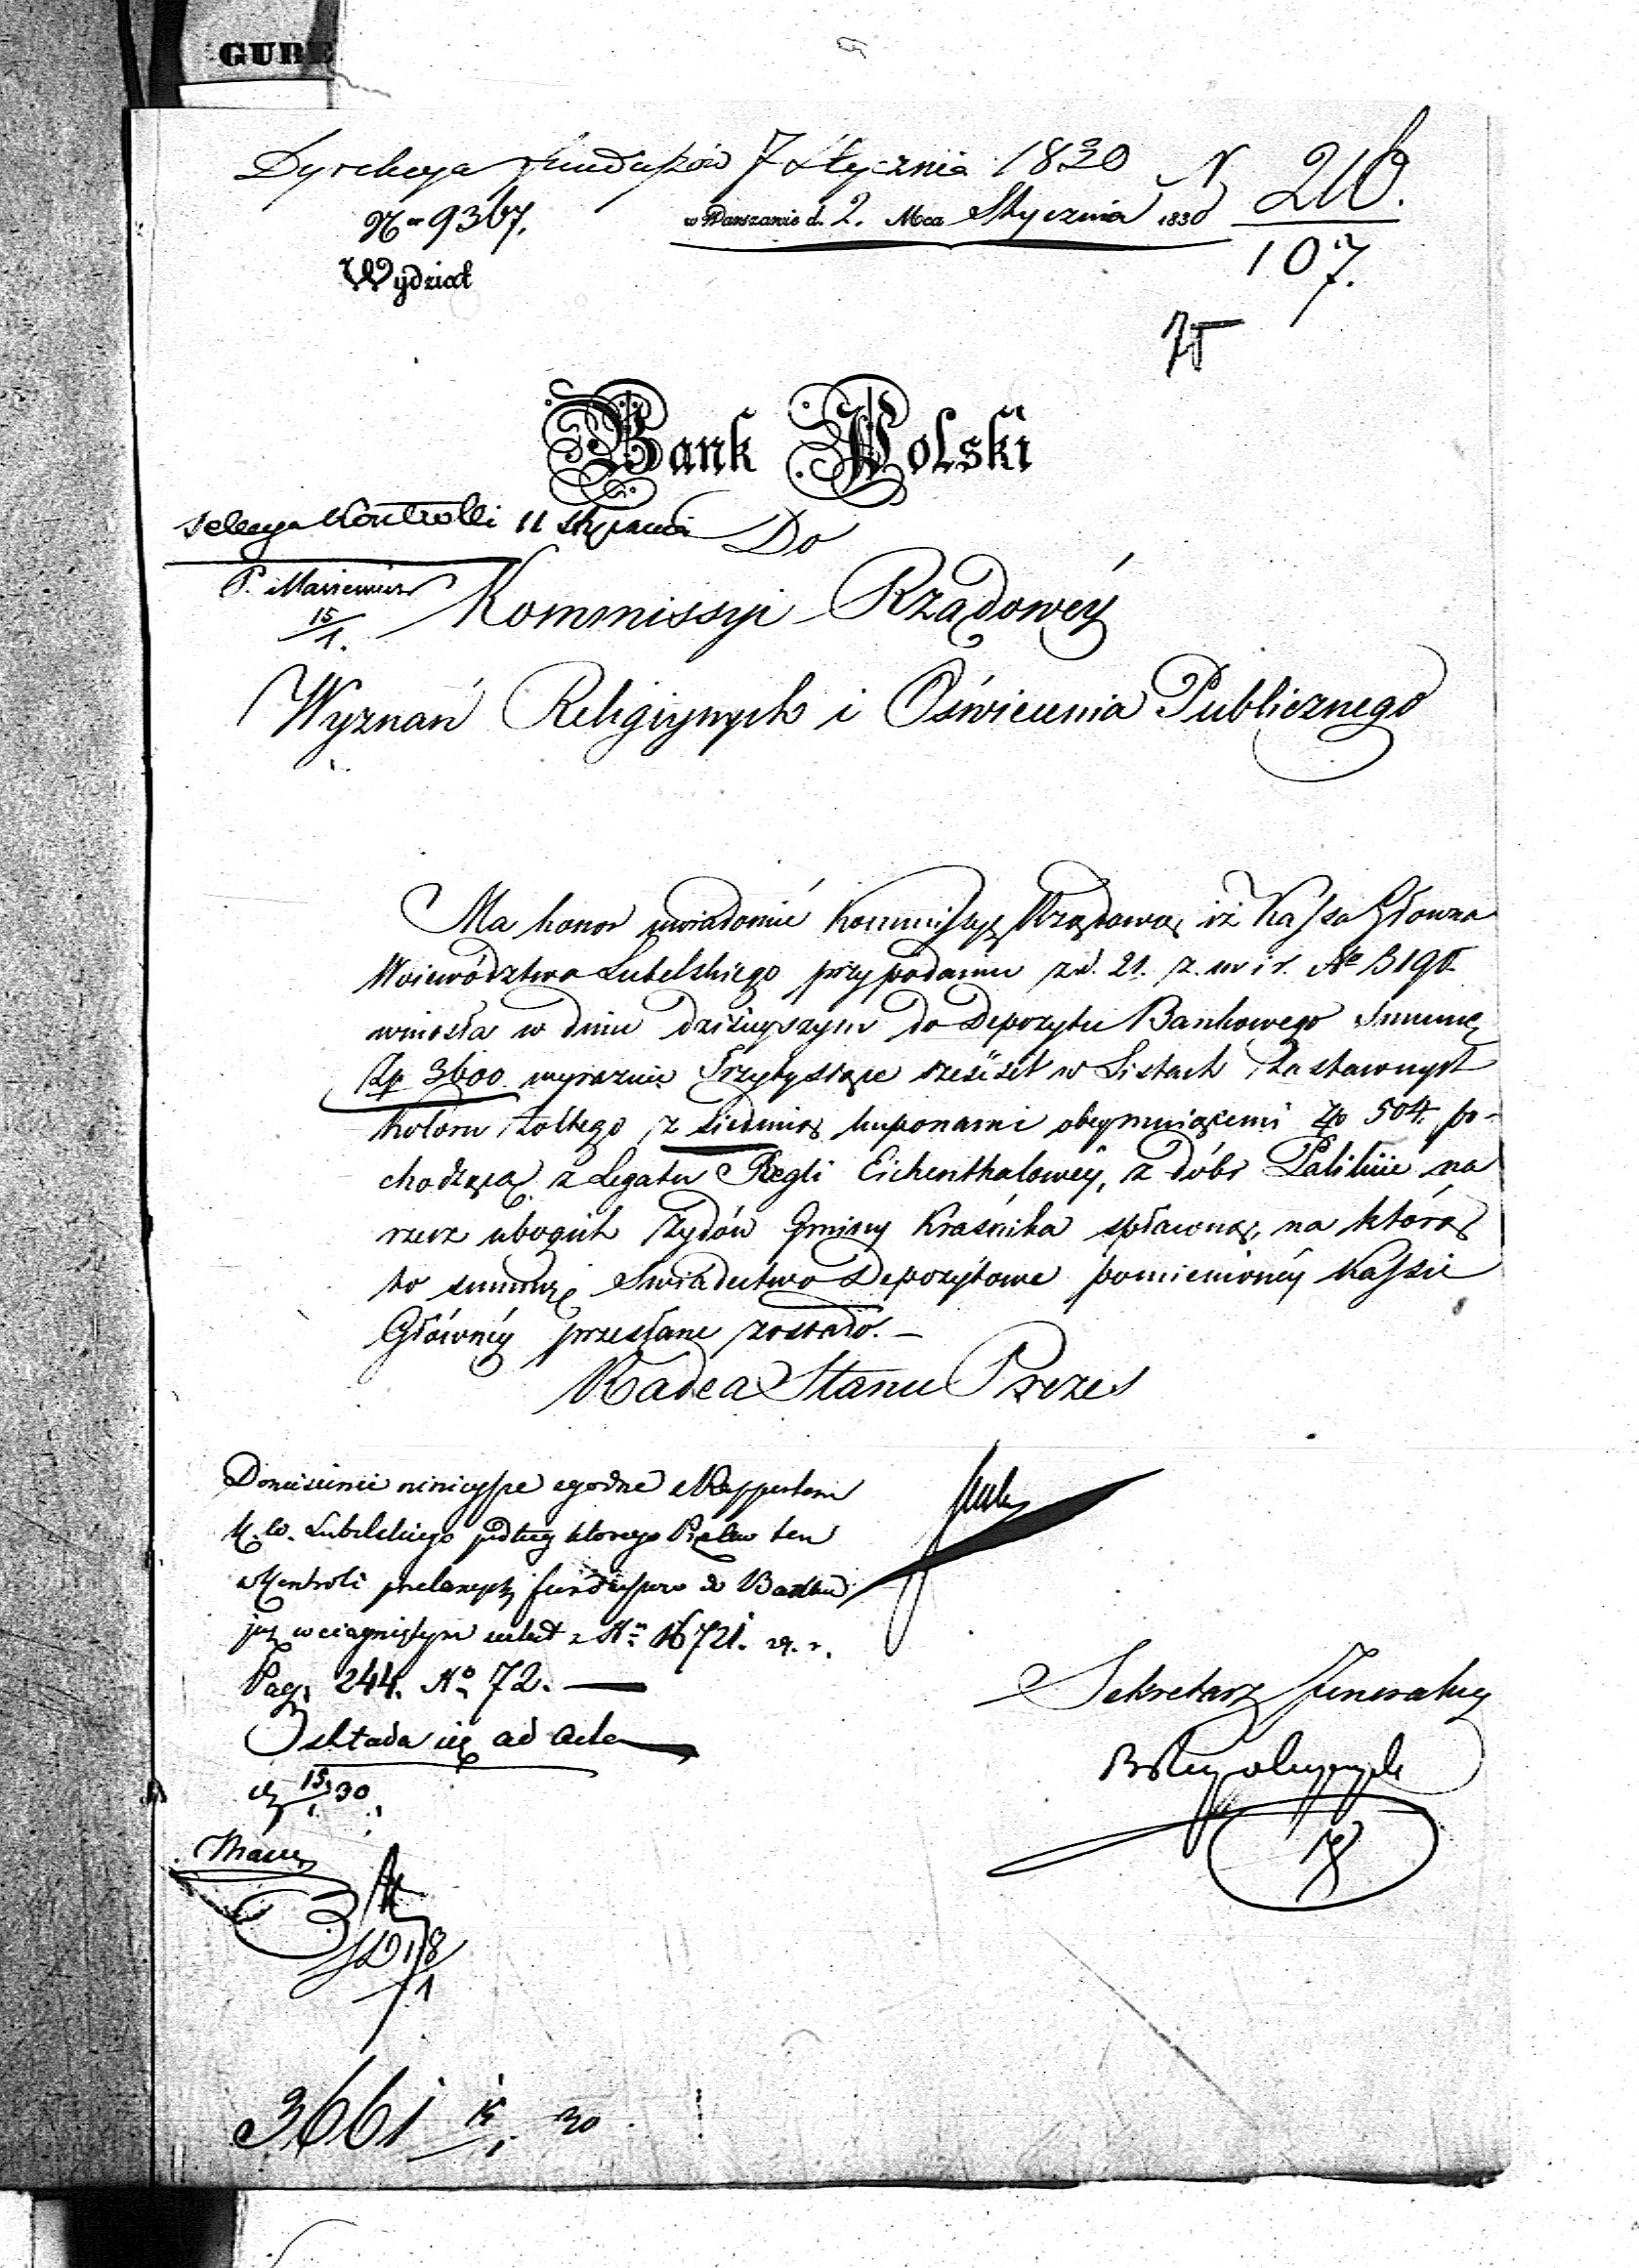 GURE
Dyrekcya Funduszów 7 Stycznia 1830 N 216.
N 9367. w Warszawie d. 2. Mca Stycznia 1830
107.
Wydział
Bank Polski
Sekcya Kontrolli 11 Stycznia Do
P.
15/1. Kommissyi Rządowéy
Wyznań Religiynych i Oświecenia Publicznego
Ma honor uwiadomić Kommissyą Rządową iż Kassa Główna
Woiewództwa Lubelskiego przy podaniu z d. 21. z. m i r. No
wniosła w dniu dzisieyszym do Depozytu Bankowego Summę
Zp 3600 wyraźnie Trzytysiące sześćset w Listach Zastawnych
koloru żółtego z siedmią kuponami obeymuiącemi Zp 504. po-
chodzącą z Legatu Regli Eichenthalowéy, z dóbr na
rzecz ubogich Żydów Gminy Kraśnika spłaconą, na którą
to summę Swiadectwo Depozytowe pomienionéy Kassie
Głównéy przesłane zostało. —
Radca Stanu Prezes
Doniesienie ninieysze zgodne z Rapportem
K. W. Lubelskiego podług którego ten
w Kontroli funduszów do Banku
już wciągniętym został z No 16721. 29. r.
Pag. 244. No 72. —
składa się ad acta
d 15/1 30
Sekretarz Jeneralny
18/1
3661 15/1 30